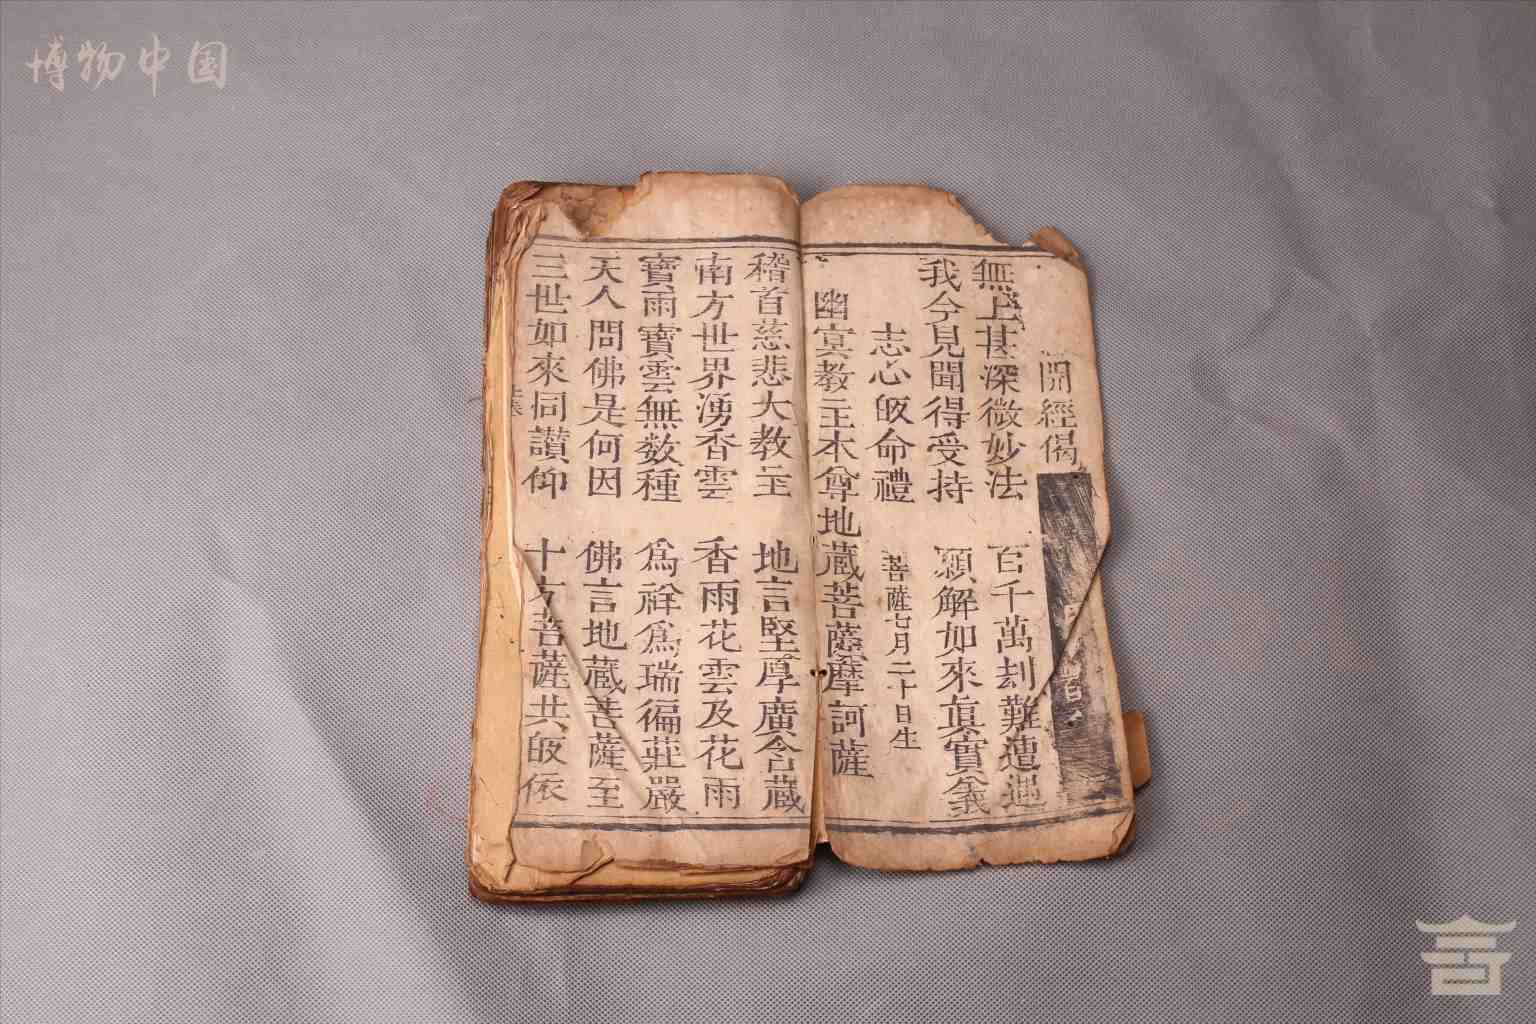 博物中国
開經偈
無上甚深微妙法 百千萬刦難遭遇
我今見聞得受持 願解如來眞實義
志心皈命禮 菩薩七月二十日生
幽冥教主本尊地蔵菩薩摩訶薩
稽首慈悲大教主 地言堅厚廣含蔵
南方世界湧香雲 香雨花雲及花雨
寶雨寶雲無数種 爲祥爲瑞徧莊嚴
天人問佛是何因 佛言地蔵菩薩至
三世如來同讃仰 十方菩薩共皈依